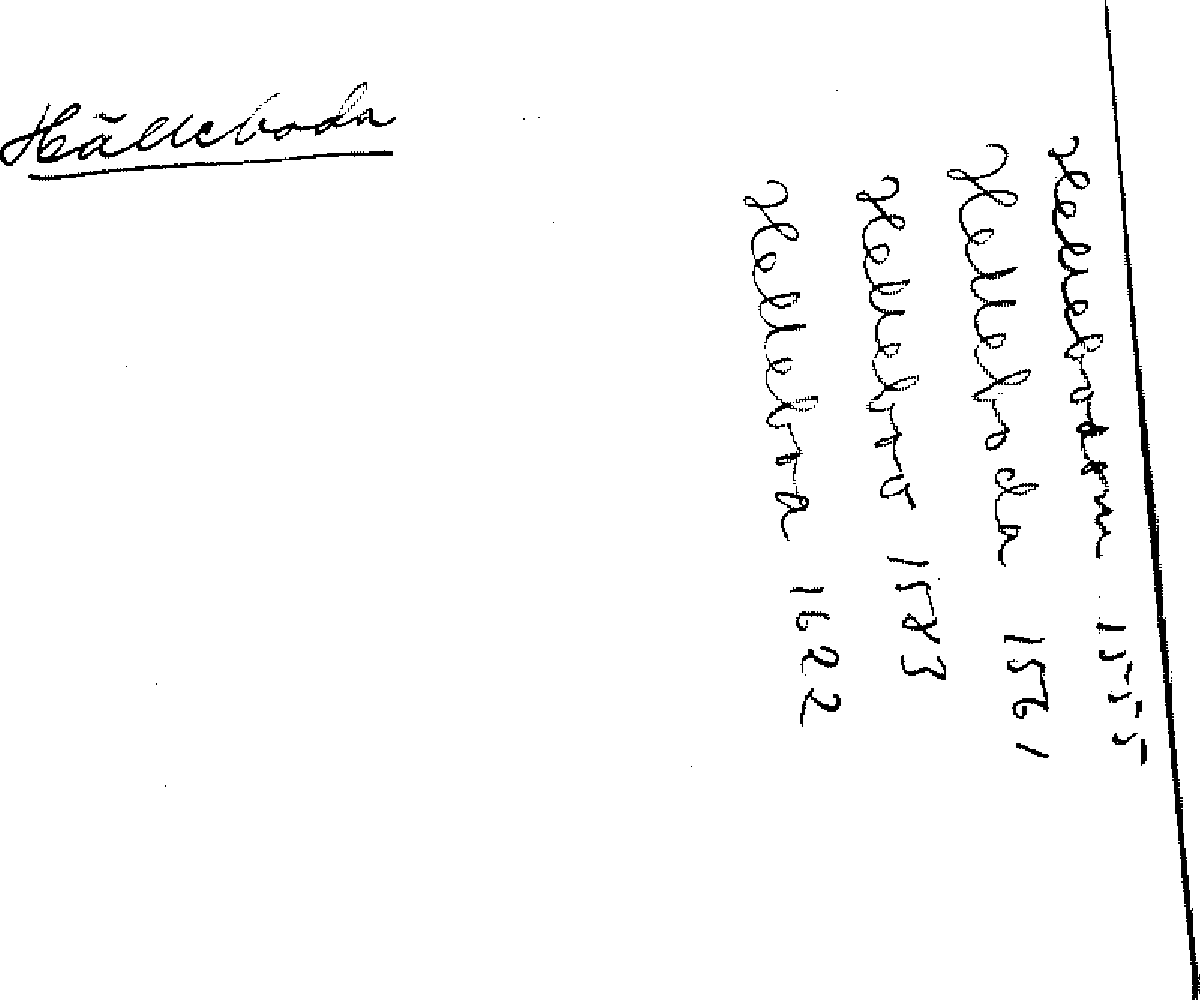 Hälleboda
Hellebodom 1555
Helleboda 1561
Hellebro 1583
Hellebra 1622